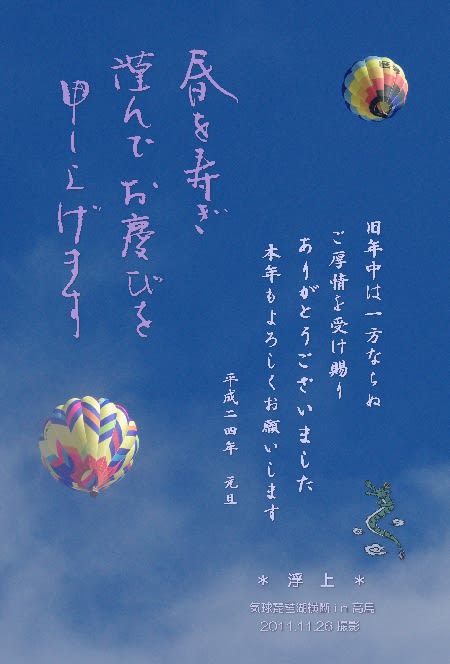 春を寿ぎ
謹んでお慶びを
申し上げます
旧年中は一方ならぬ
ご厚情を受け賜り
ありがとうございました
本年もよろしくお願いします
平成二四年 元旦
＊ 浮 上 ＊
気球琵琶湖横断 in 高島
2011.11.26 撮影